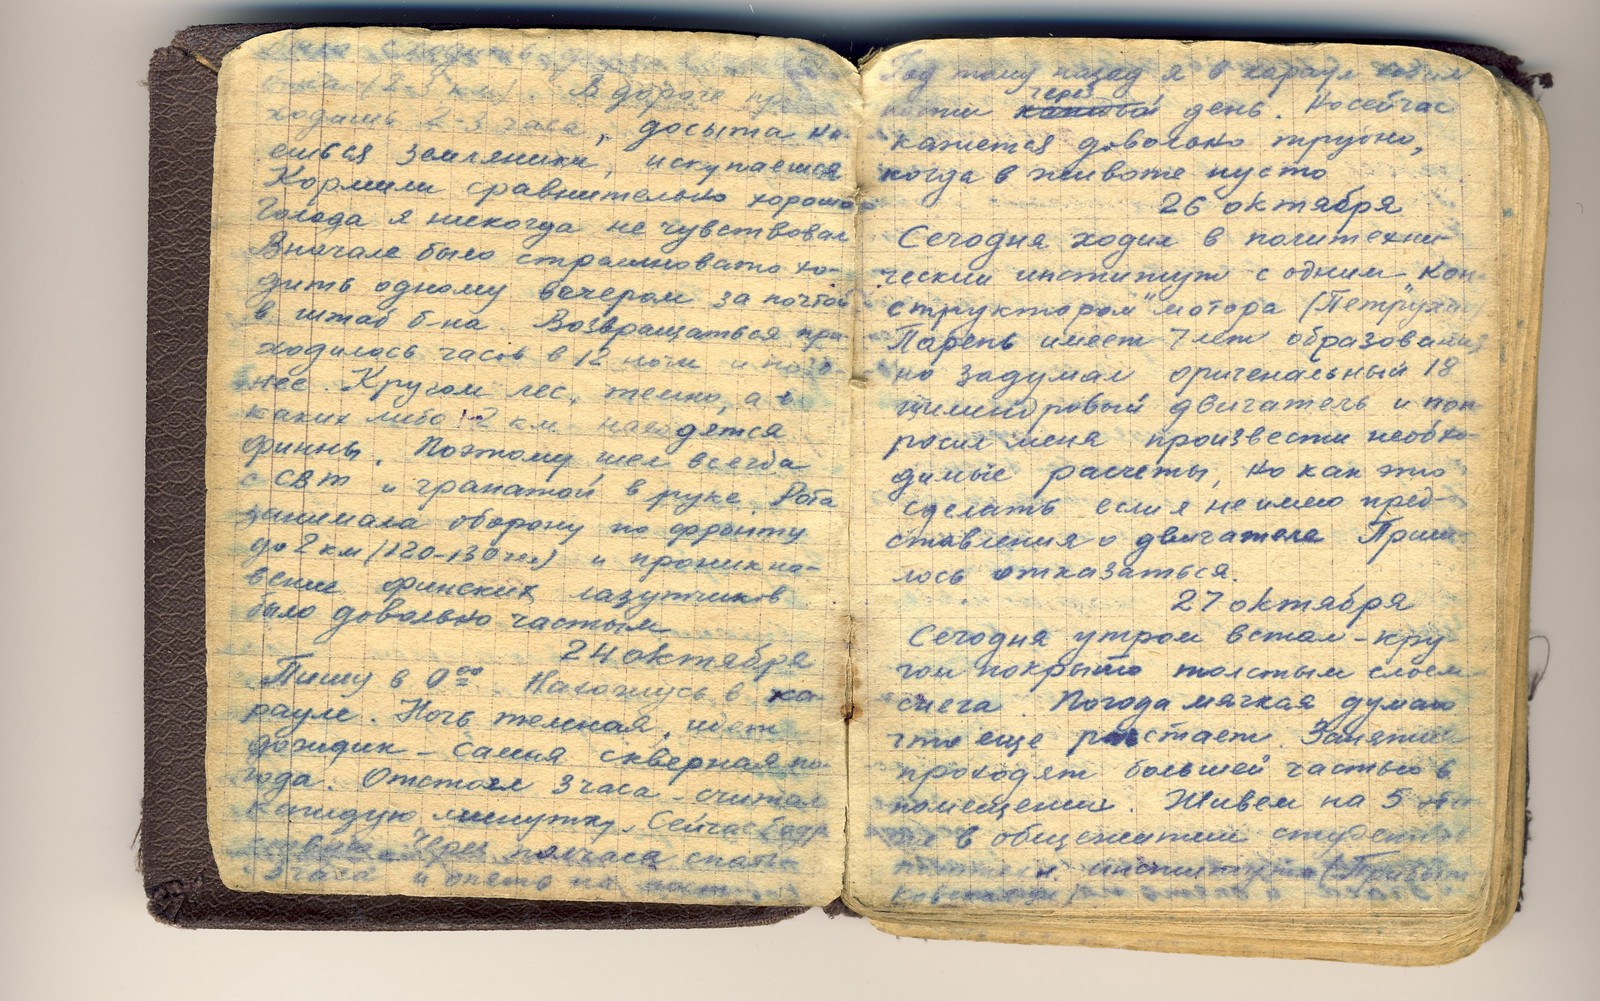 (2-3 км). В дороге про-
ходишь 2-3 часа, досыта на-
ешься земляники, искупаешься
Кормили сравнительно хорошо
Голода я никогда не чувствовал
Вначале было страшновато хо-
дить одному вечером за почтой
в штаб б-на. Возвращаться при-
ходилось часов в 12 ночи и позд-
нее. Кругом лес, темно, а в
каких либо 1-2 км находятся
финны. Поэтому шел всегда
с СВТ и гранатой в руке. Рота
занимала оборону по фронту
до 2 км (120-130 чел) и проникно-
вение финских лазутчиков
было довольно частым
24 октября
Пишу в 0⁰⁰. Нахожусь в ка-
рауле. Ночь темная, идет
дождик - самая скверная по-
года. Отстоял 3 часа - считал
каждую минутку. Сейчас бодр-
ствую. Через полчаса спать
3 часа и опять на пост
Год тому назад я в караул ходил
почти через день. Но сейчас
кажется довольно трудно,
когда в животе пусто
26 октября
Сегодня ходил в политехни-
ческий институт с одним "кон-
структором" мотора (Петрухин)
Парень имеет 7 лет образования
но задумал оригенальный 18
цилиндровый двигатель и поп-
росил меня произвести необхо-
димые расчеты, но как это
сделать если я не имею пред-
ставления о двигателе Приш-
лось отказаться.
27 октября
Сегодня утром встал - кру-
гом покрыто толстым слоем
снега. Погода мягкая думаю
что еще растает. Занятия
проходят большей частью в
помещении. Живем на 5 эта-
же в общежитии студентов
политех. института (Прибыт-